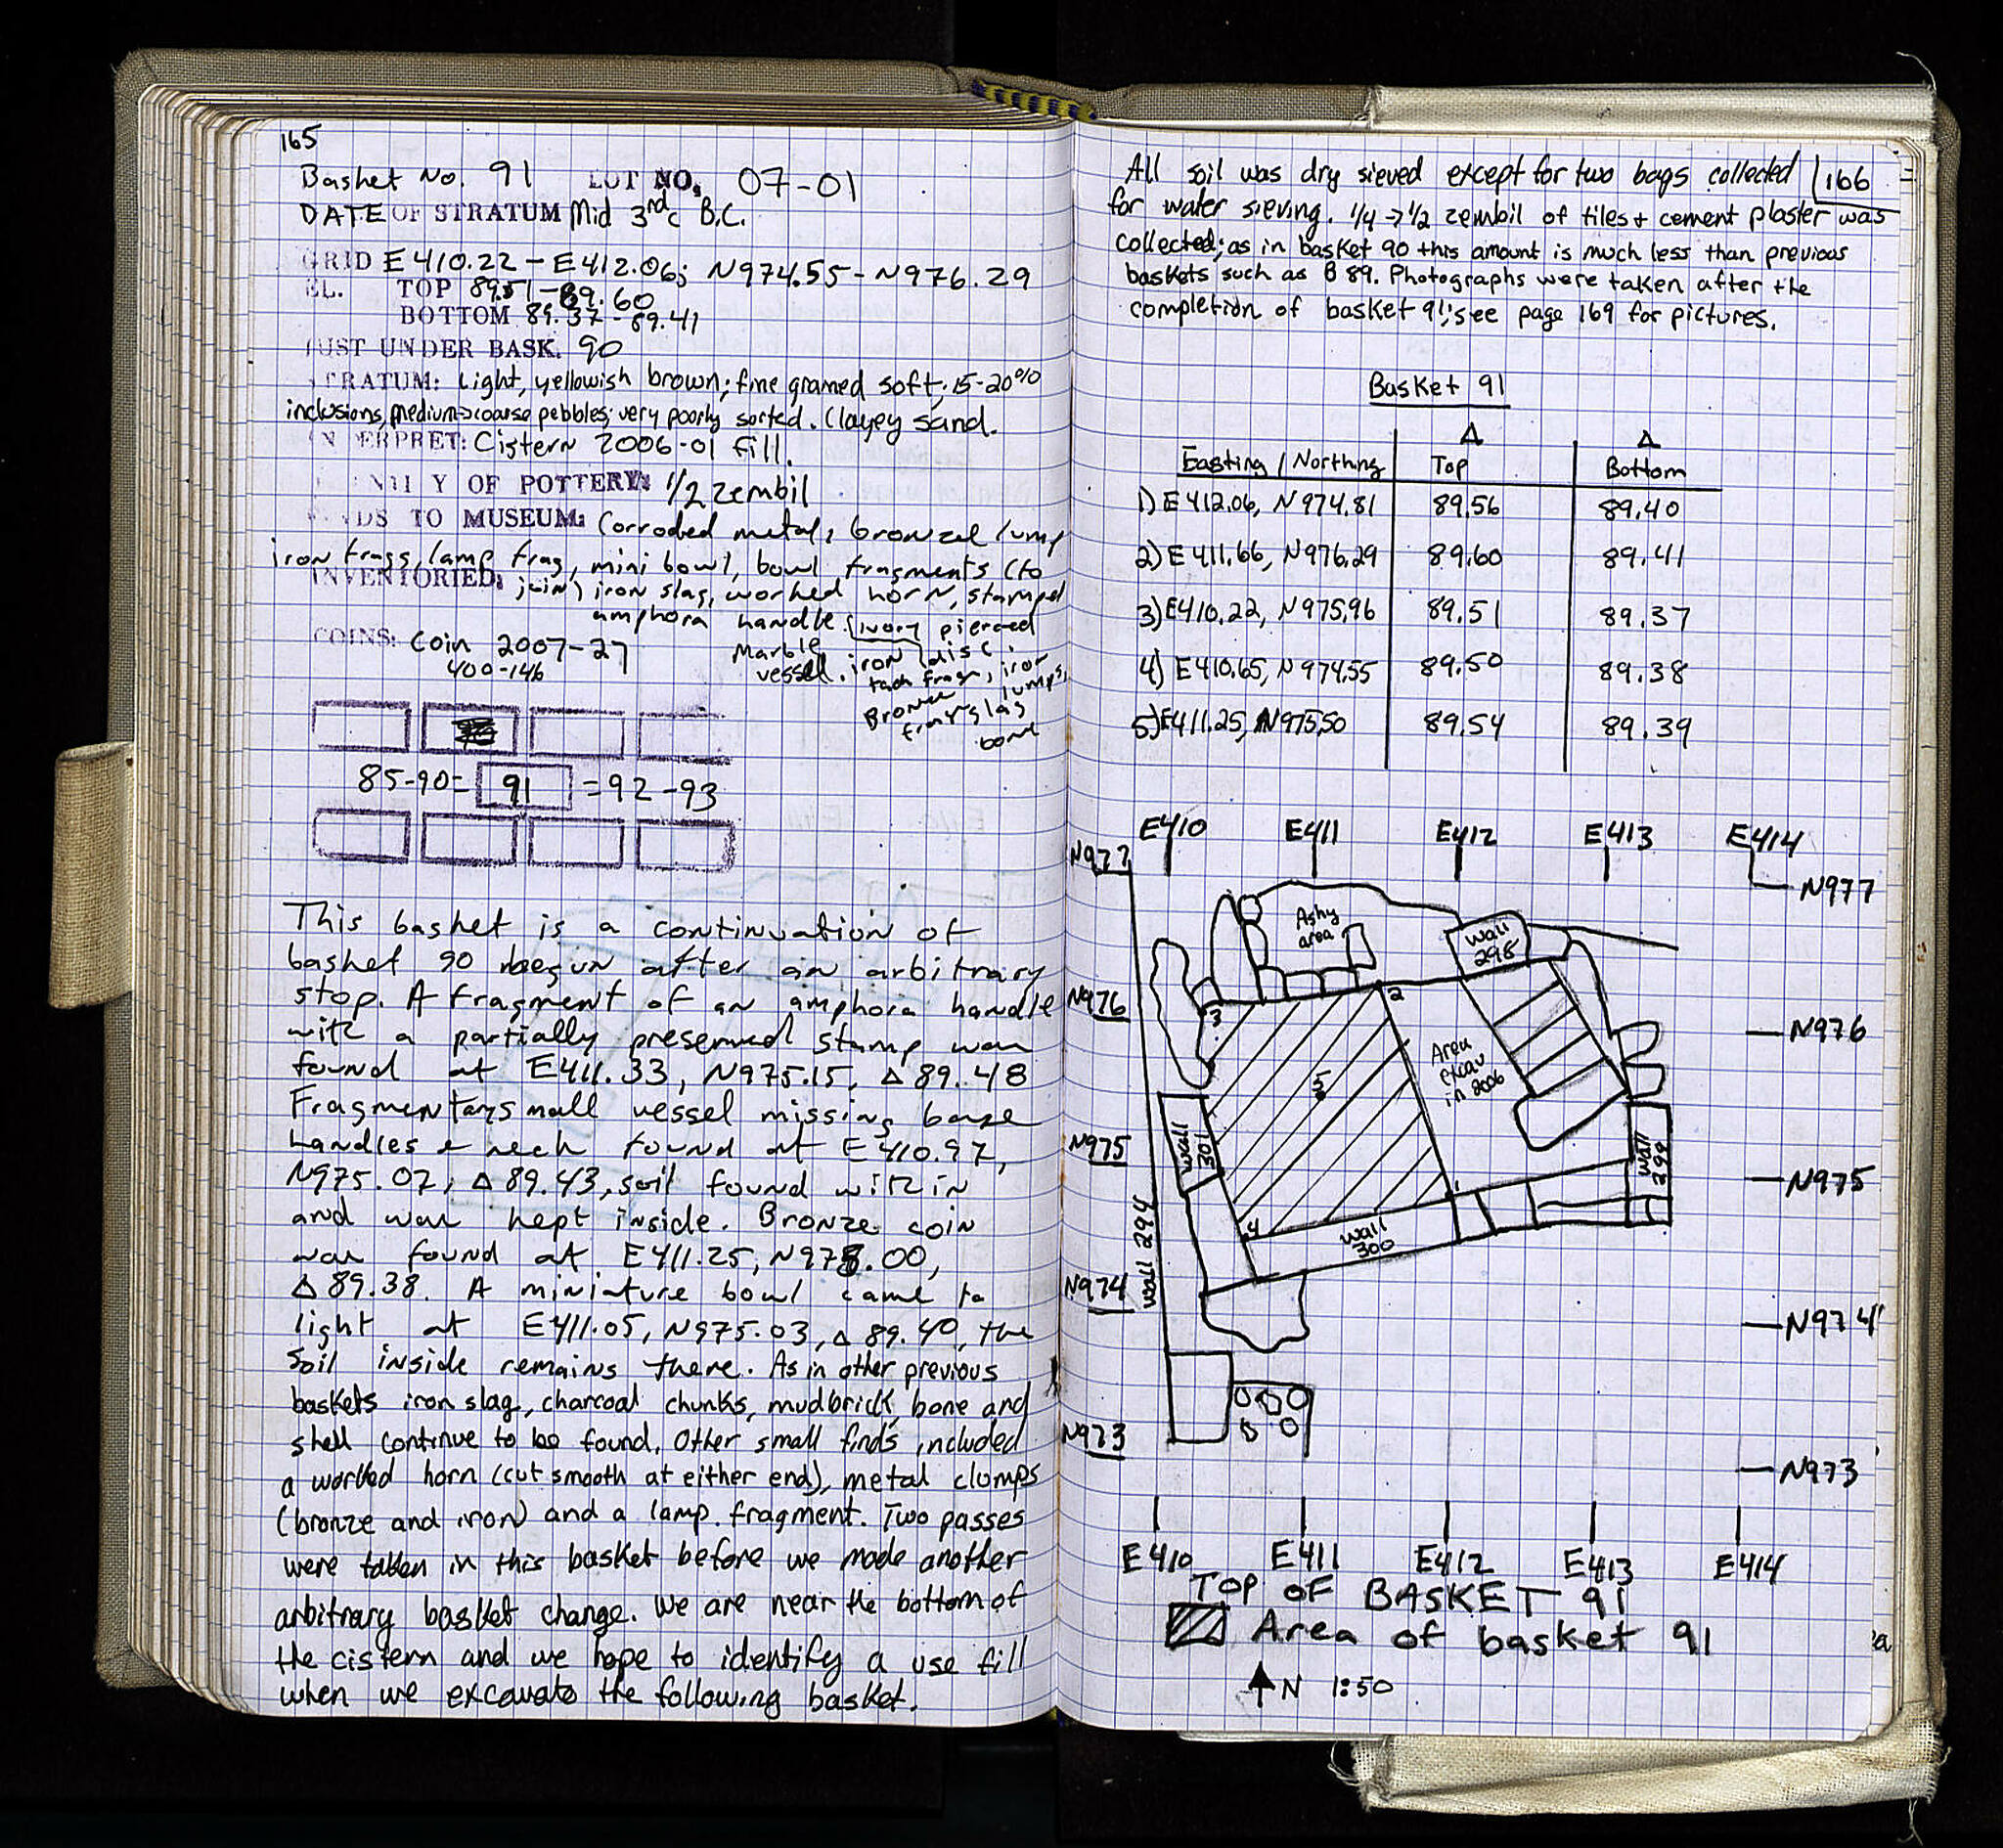 165
Basket No. 91 LOT NO. 07-01
DATE OF STRATUM Mid 3rd c B.C.
GRID E410.22 - E412.06; N974.55 - N976.29
EL. TOP 89.51-89.60
BOTTOM 89.37-89.41
JUST UNDER BASK. 90
STRATUM: Light, yellowish brown; fine grained soft; 15-20%
inclusions, medium→coarse pebbles; very poorly sorted. Clayey sand.
INTERPRET: Cistern 2006-01 fill.
QUANTITY OF POTTERY: 1/2 zembil
FINDS TO MUSEUM: Corroded metal, bronze lump
iron frags, lamp frag, mini bowl, bowl fragments (to
INVENTORIED: join) iron slag, worked horn, stamped
amphora handle. ivory pierced
Marble disc.
vessel. iron
tack frag, iron
lumps,
Bronze
frag slag
bone
COINS: Coin 2007-27
400-146
85-90= 91 =92-93
This basket is a continuation of
basket 90 begun after an arbitrary
stop. A fragment of an amphora handle
with a partially preserved stamp was
found at E411.33, N975.15, Δ 89.48
Fragmentary small vessel missing base
handles & neck found at E410.97,
N975.07, Δ 89.43, soil found within
and was kept inside. Bronze coin
was found at E411.25, N975.00,
Δ 89.38. A miniature bowl came to
light at E411.05, N975.03, Δ 89.40, the
soil inside remains there. As in other previous
baskets iron slag, charcoal chunks, mudbrick, bone and
shell continue to be found. Other small finds included
a worked horn (cut smooth at either end), metal clumps
(bronze and iron) and a lamp fragment. Two passes
were taken in this basket before we made another
arbitrary basket change. We are near the bottom of
the cistern and we hope to identify a use fill
when we excavate the following basket.
166
All soil was dry sieved except for two bags collected
for water sieving. 1/4→1/2 zembil of tiles + cement plaster was
collected; as in basket 90 this amount is much less than previous
baskets such as B 89. Photographs were taken after the
completion of basket 91; see page 169 for pictures.
Basket 91
Δ Δ
Easting / Northing Top Bottom
1) E412.06, N974.81 89.56 89.40
2) E411.66, N976.29 89.60 89.41
3) E410.22, N975.96 89.51 89.37
4) E410.65, N974.55 89.50 89.38
5) E411.25, N975.50 89.54 89.39
E410 E411 E412 E413 E414
N977 N977
Ashy
area
Wall
298
N976 N976
2
3
Area
excav
in 2006
5
N975 N975
Wall
301
Wall
299
1
4
Wall
300
Wall 294
N974 N974
N973 N973
E410 E411 E412 E413 E414
TOP OF BASKET 91
Area of basket 91
N 1:50